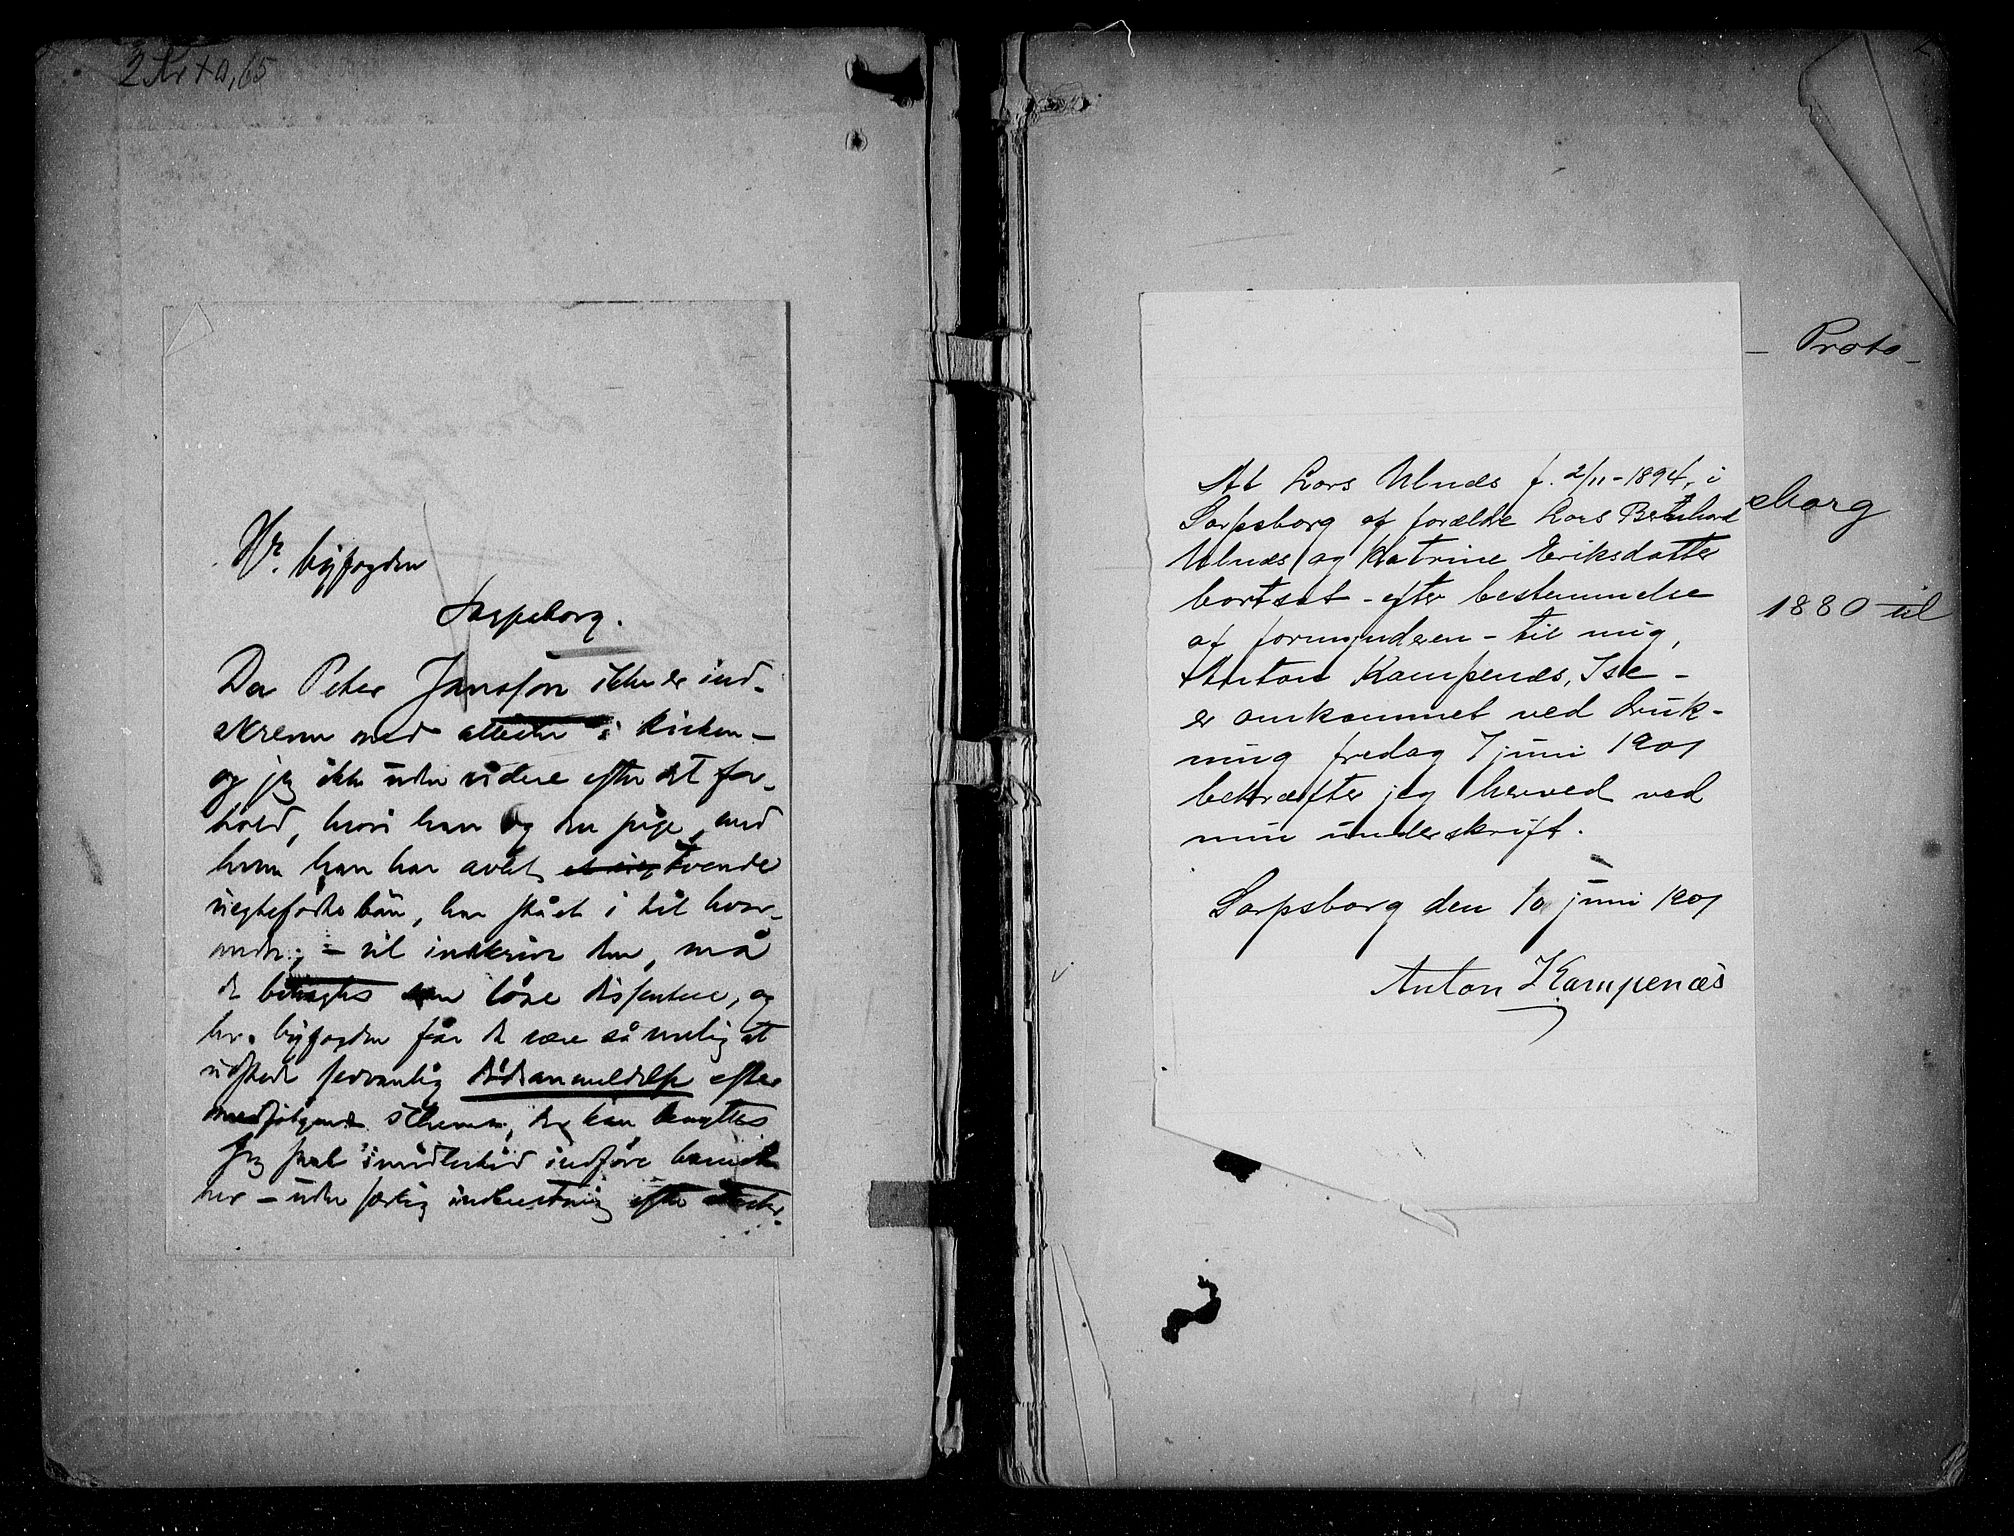 2 Kr + 0,65
Hr. byfogden
Sarpsborg.
Da Peter Jansson ikke er ind-
skreven med attester i kirken –
og jeg ikke uden videre efter det for-
hold, hvori han og den pige, med
hvem han har avlet tvende
uegtefødte børn, har stået i til hver-
andre, – vil indskrive dem, må
de betragtes som løse dissentere, og
hr. byfogden får da være så venlig at
udstede sedvanlig dødsanmeldelse efter
medfølgende schema, der kan benyttes
Jeg skal imidlertid indføre barnet
her – uden særlig
At Lars Ulnæs f. 2/11-1894, i
Sarpsborg af forældre Lars Bernhard
Ulnæs og Katrine Eriksdatter
bortsat – efter bestemmelse
af formynderen – til mig,
Anton Kampenæs, Ise –
er omkommet ved druk-
ning fredag 7 juni 1901
bekræfter jeg herved ved
min underskrift.
Sarpsborg den 10 juni 1901
Anton Kampenæs
– Proto –
sborg
1880 til